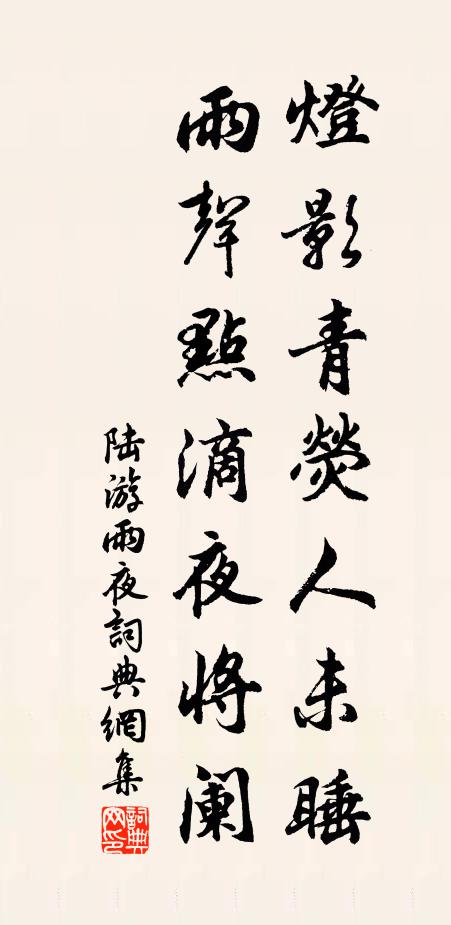 燈影青熒人未睡
雨聲點滴夜將闌
陆游雨夜詞典網集
詞典
网印